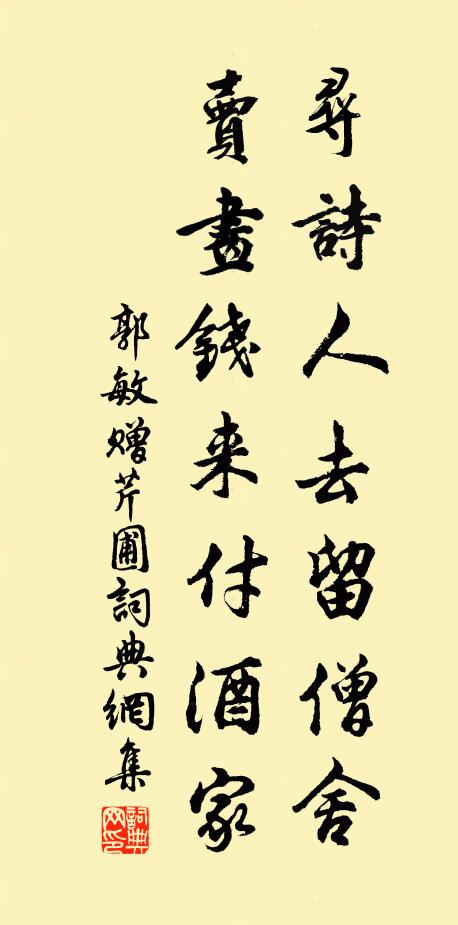 尋詩人去留僧舍
賣畫錢來付酒家
郭敏贈芹圃詞典網集
詞典網印